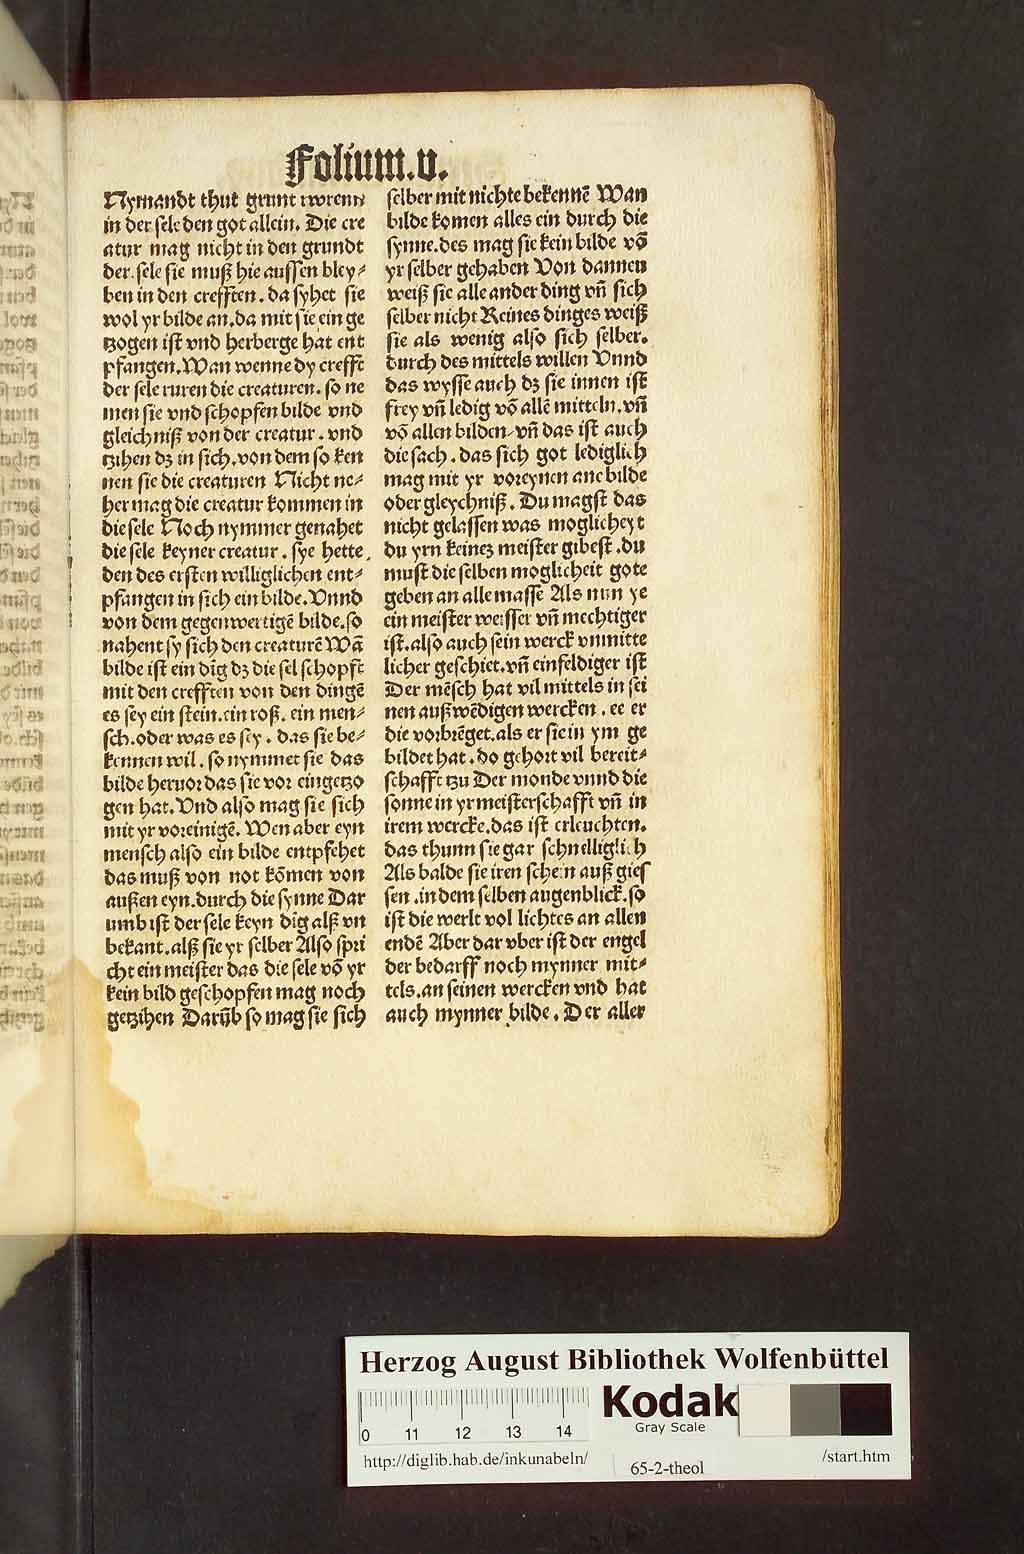 Folium.v.
Nymandt thut grunt
in der sele den got allein. Die cre
atur mag nicht in den grundt
der.sele sie muß hie aussen bley⸗
ben in den crefften.da syhet sie
wol yr bilde an.da mit sie ein ge
tzogen ist vnd herberge hat ent
pfangen.Wan wenne dy crefft
der sele ruren die creaturen.so ne
men sie vnd schopfen bilde vnd
gleichniß von der creatur.vnd
tzihen dz in sich.von dem so ken
nen sie die creaturen Nicht ne⸗
her mag die creatur kommen in
die sele Noch nymmer genahet
die sele keyner creatur.sye hette
den des ersten williglichen ent⸗
pfangen in sich ein bilde.Vnnd
von dem gegenwertigē bilde.so
nahent sy sich den creaturē Wā
bilde ist ein dīg dz die sel schopft
mit den crefften von den dingē
es sey ein stein.ein roß.ein men⸗
sch.oder was es sey.das sie be⸗
kennen wil.so nymmet sie das
bilde heruor das sie vor eingetzo
gen hat.Vnd also mag sie sich
mit yr voreinigē.Wen aber eyn
mensch also ein bilde entpfehet
das muß von not kōmen von
außen eyn.durch die synne Dar
umb ist der sele keyn dīg alß vn
bekant.alß sie yr selber Also spri
cht ein meister das die sele vō yr
kein bild geschopfen mag noch
getzihen Darūb so mag sie sich
selber mit nichte bekennē Wan
bilde komen alles ein durch die
synne.des mag sie kein bilde vō
yr selber gehaben Von dannen
weiß sie alle ander ding vn̄ sich
selber nicht Keines dinges weiß
sie als wenig also sich selber.
durch des mittels willen Vnnd
das wysse auch dz sie innen ist
frey vn̄ ledig vō allē mitteln.vn̄
vō allen bilden⸗vn̄ das ist auch
die sach.das sich got lediglich
mag mit yr voreynen ane bilde
oder gleychniß.Du magst das
nicht gelassen was moglicheyt
du yrn keinez meister gibest.du
must die selben moglicheit gote
geben an alle masse Als nun ye
ein meister weisser vn̄ mechtiger
ist.also auch sein werck vnmitte
licher geschiet.vn̄ einfeldiger ist
Der mēsch hat vil mittels in sei
nen außwēdigen wercken.ee er
die vorbrēget.als er sie in ym ge
bildet hat.do gehort vil bereit⸗
schafft tzu Der monde vnnd die
sonne in yr meisterschafft vn̄ in
irem wercke.das ist erleuchten.
das thunn sie gar schnelliglich
Als balde sie iren schein auß gies
sen.in dem selben augenblick.so
ist die werlt vol lichtes an allen
endē Aber dar vber ist der engel
der bedarff noch mynner mit⸗
tels.an seinen wercken vnd hat
auch mynner bilde.Der aller
Herzog August Bibliothek Wolfenbüttel
0 11 12 13 14
Kodak
Gray Scale
http://diglib.hab.de/inkunabeln/
65-2-theol
/start.htm